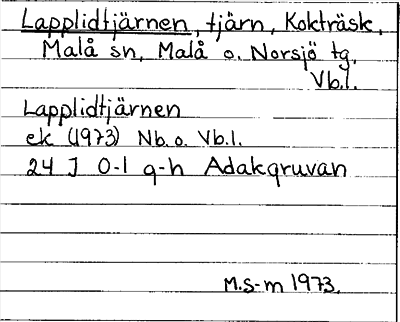 Lapplidtjärnen, tjärn, Kokträsk,
Malå sn, Malå o. Norsjö tg,
Vb.l.
Lapplidtjärnen
ek (1973) Nb. o. Vb.l.
24 J 0-1 g-h Adakgruvan
M.S-m 1973.